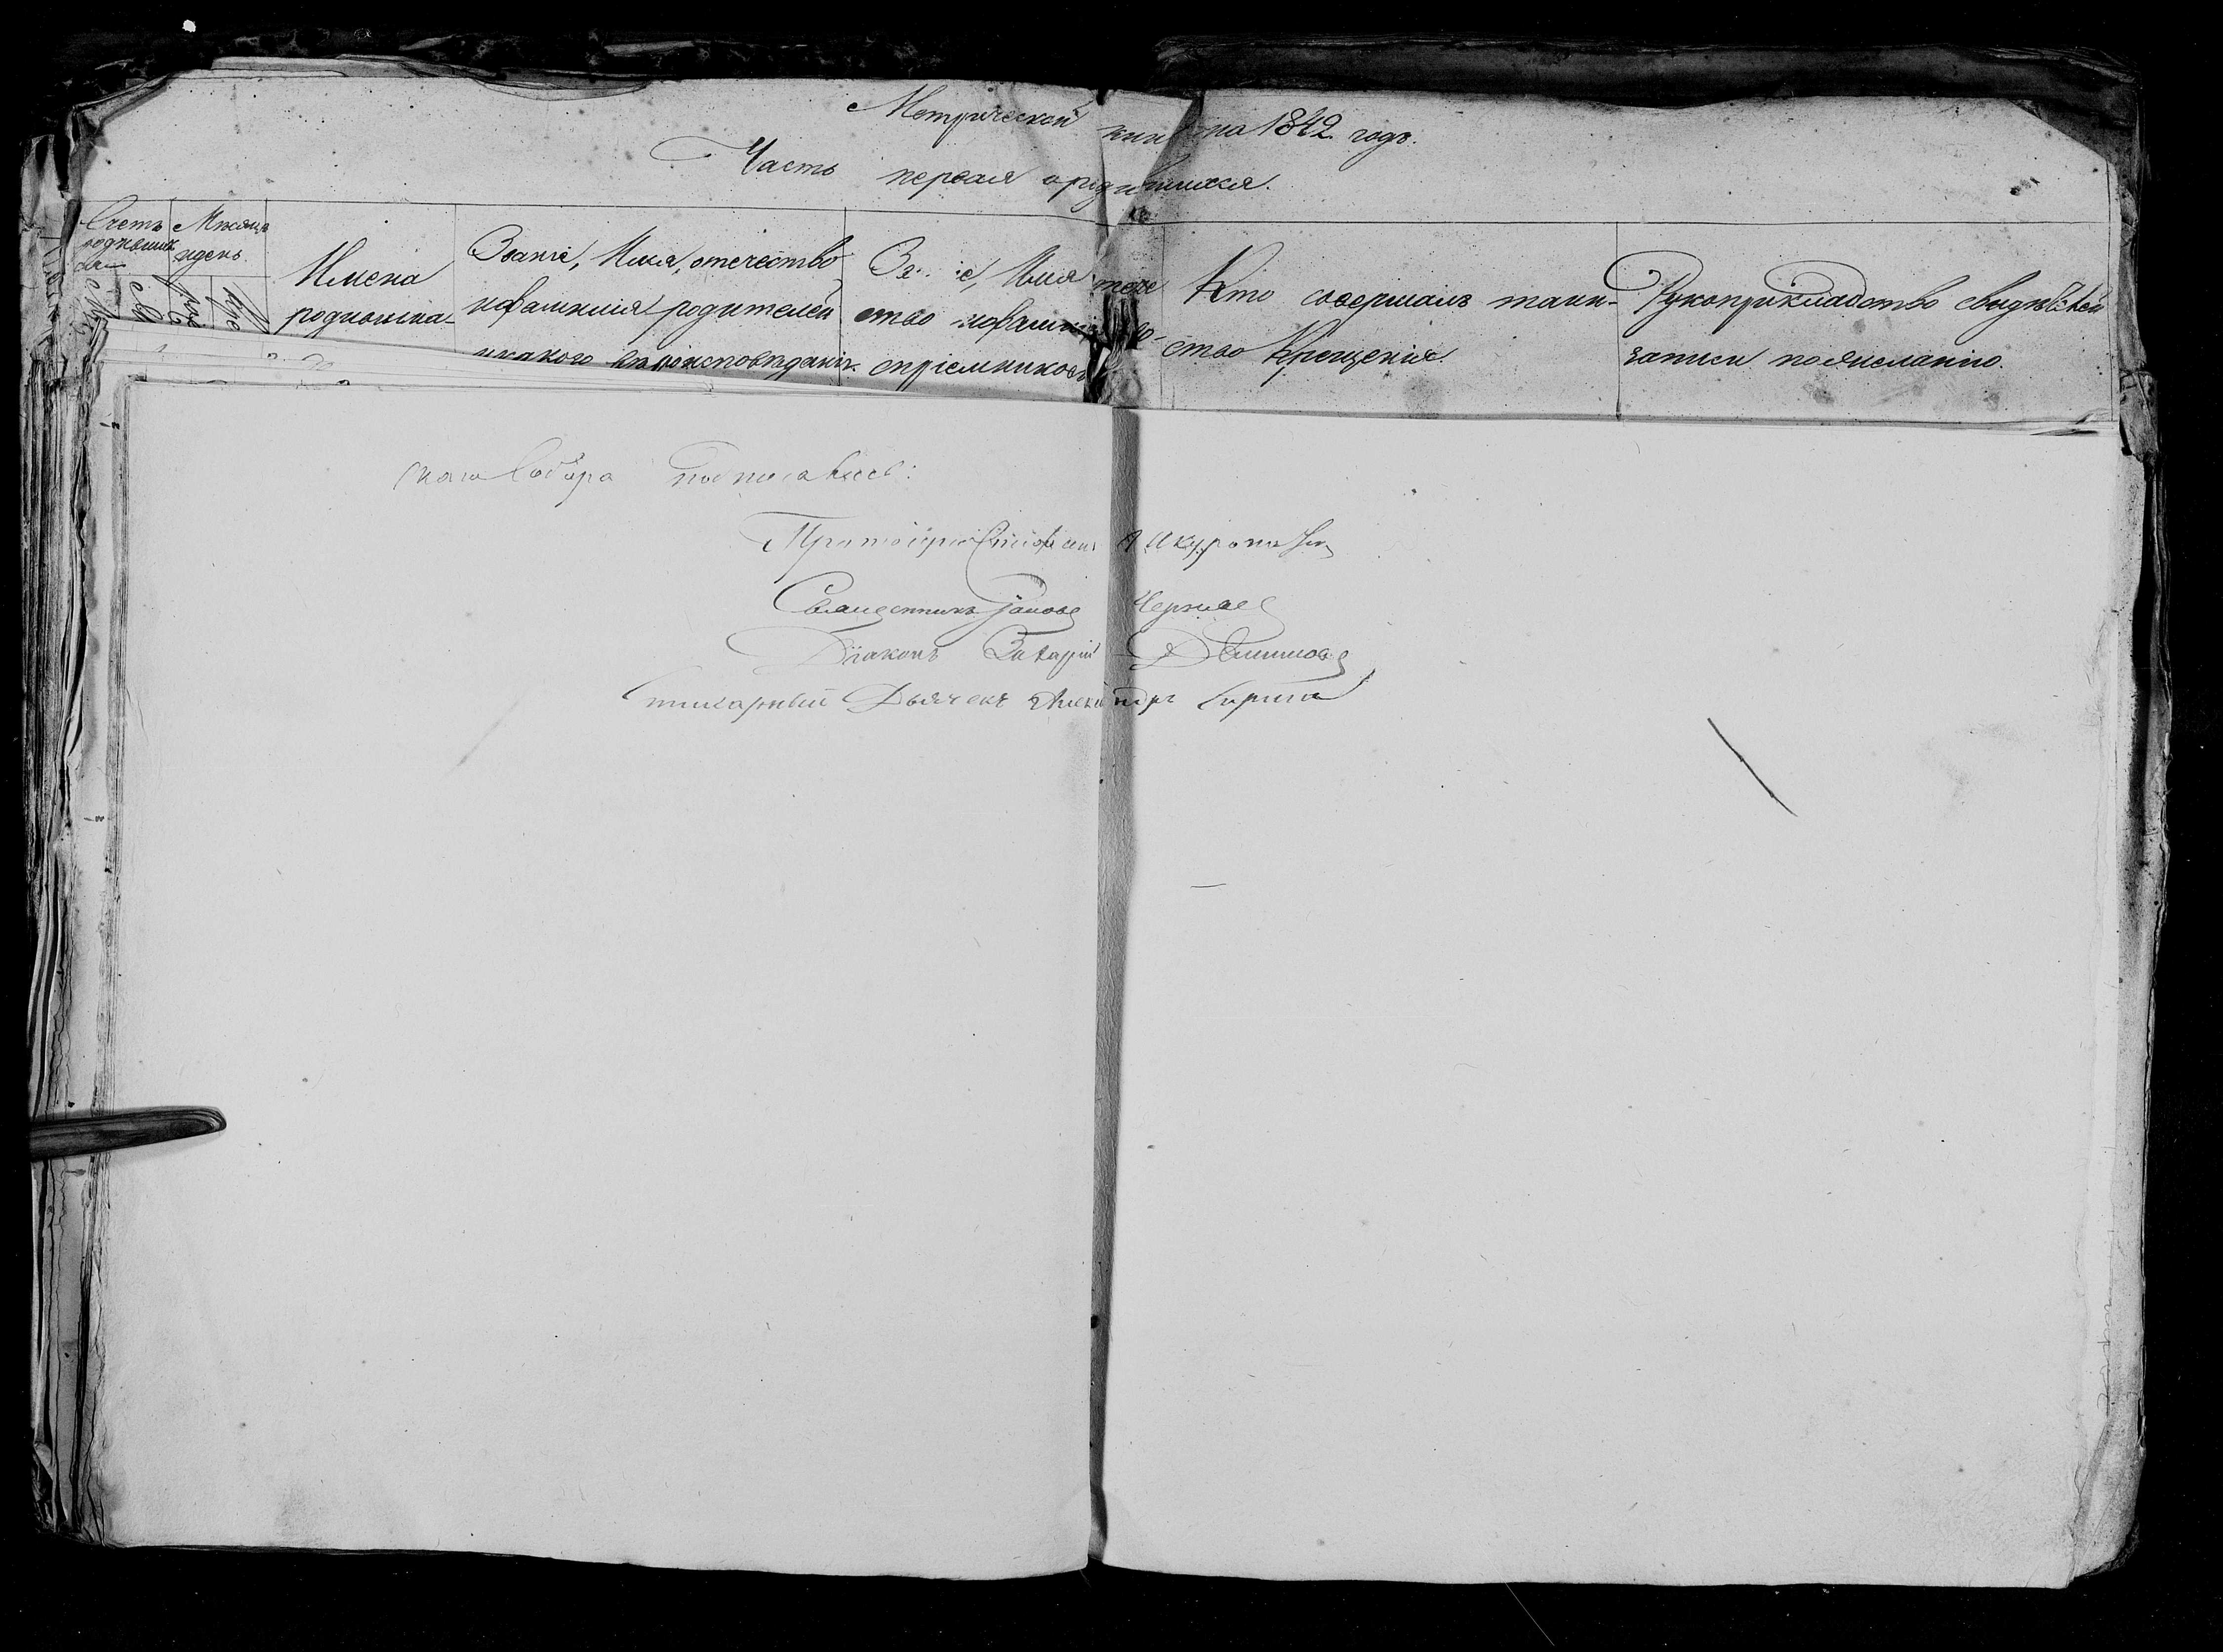 Метрической книги на 1842 годъ.
Часть первая о родившихся.
Счетъ родившихся
Мѣсяцъ и день.
Имена родившихся
Званіе, Имя, отечество и фамилія родителей и какого вѣроисповѣданія.
Званіе, Имя отечество и фамилія воспріемниковъ
Кто совершалъ таинство Крещенія.
Рукоприкладство свидѣтелей записи по желанію.
скаго Собора подписались:
Протоіерей
Священникъ Іаковъ Черняев
Діаконъ Захарій
Стихарный Дьячекъ Александръ